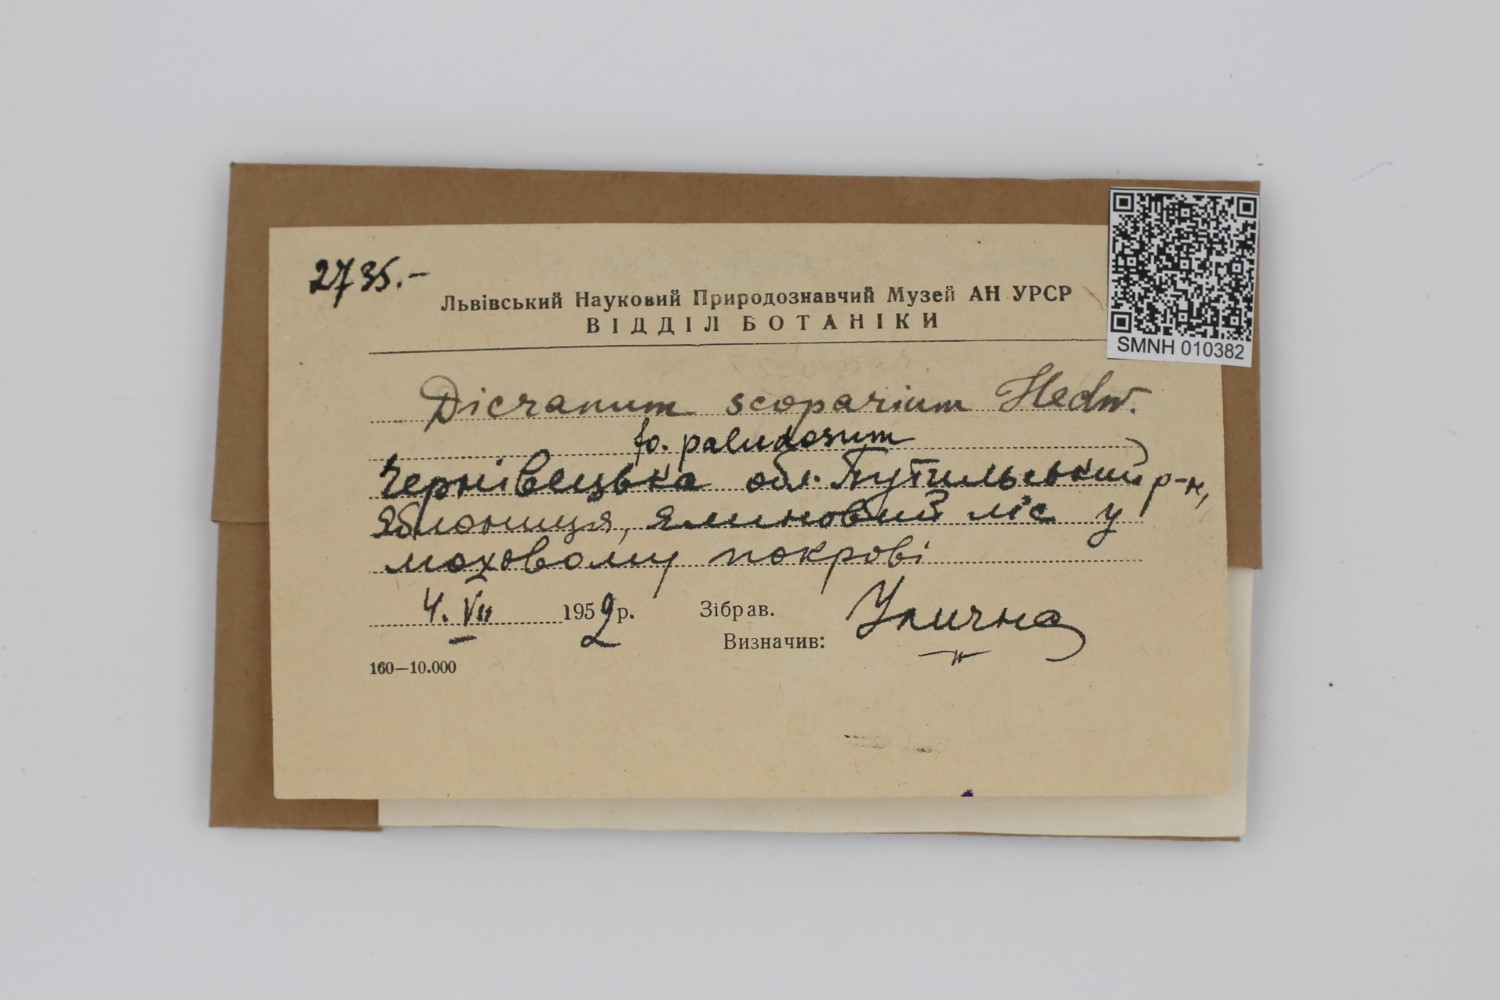 2735.-
Львівський Науковий Природознавчий Музей АН УРСР
ВІДДІЛ БОТАНІКИ
SMNH 010382
Dicranum scoparium Hedw.
fo. paludosum
Чернівецька обл. Путильський р-н,
Яблониця, ялиновий ліс у
моховому покрові
4. VII 1952 р. Зібрав. Улична
Визначив: -"-
160—10.000